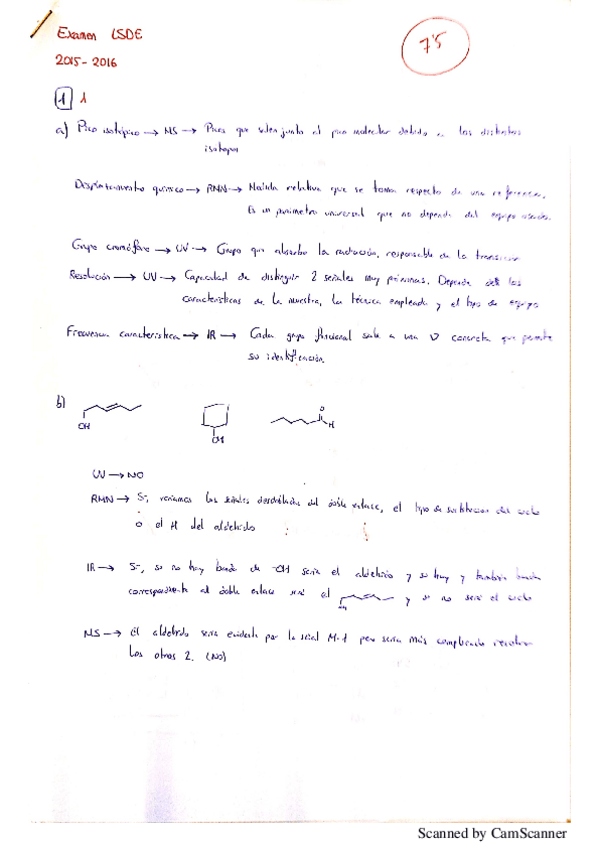 Examen LSDE
75
2015-2016
1 1
a) Pico isotópico → MS → Picos que salen junto al pico molecular debido a los distintos
isótopos
Desplazamiento químico → RMN → Medida relativa que se toma respecto de una referencia.
Es un parámetro universal que no depende del equipo usado.
Grupo cromóforo → UV → Grupo que absorbe la radiación, responsable de la transición
Resolución → UV → Capacidad de distinguir 2 señales muy próximas. Depende de las
características de la muestra, la técnica empleada y el tipo de equipo
Frecuencia característica → IR → Cada grupo funcional sale a una ν concreta que permite
su identificación
b)
OH
OH
O
H
UV → NO
RMN → Sí, veríamos las señales del doble enlace, el tipo de sustitución del ciclo
o el H del aldehído
IR → Sí, si no hay banda de -OH sería el aldehído y si hay y también banda
correspondiente al doble enlace será el OH y si no será el ciclo
MS → El aldehído sería evidente por la señal M-1 pero sería más complicado resolver
los otros 2. (NO)
Scanned by CamScanner